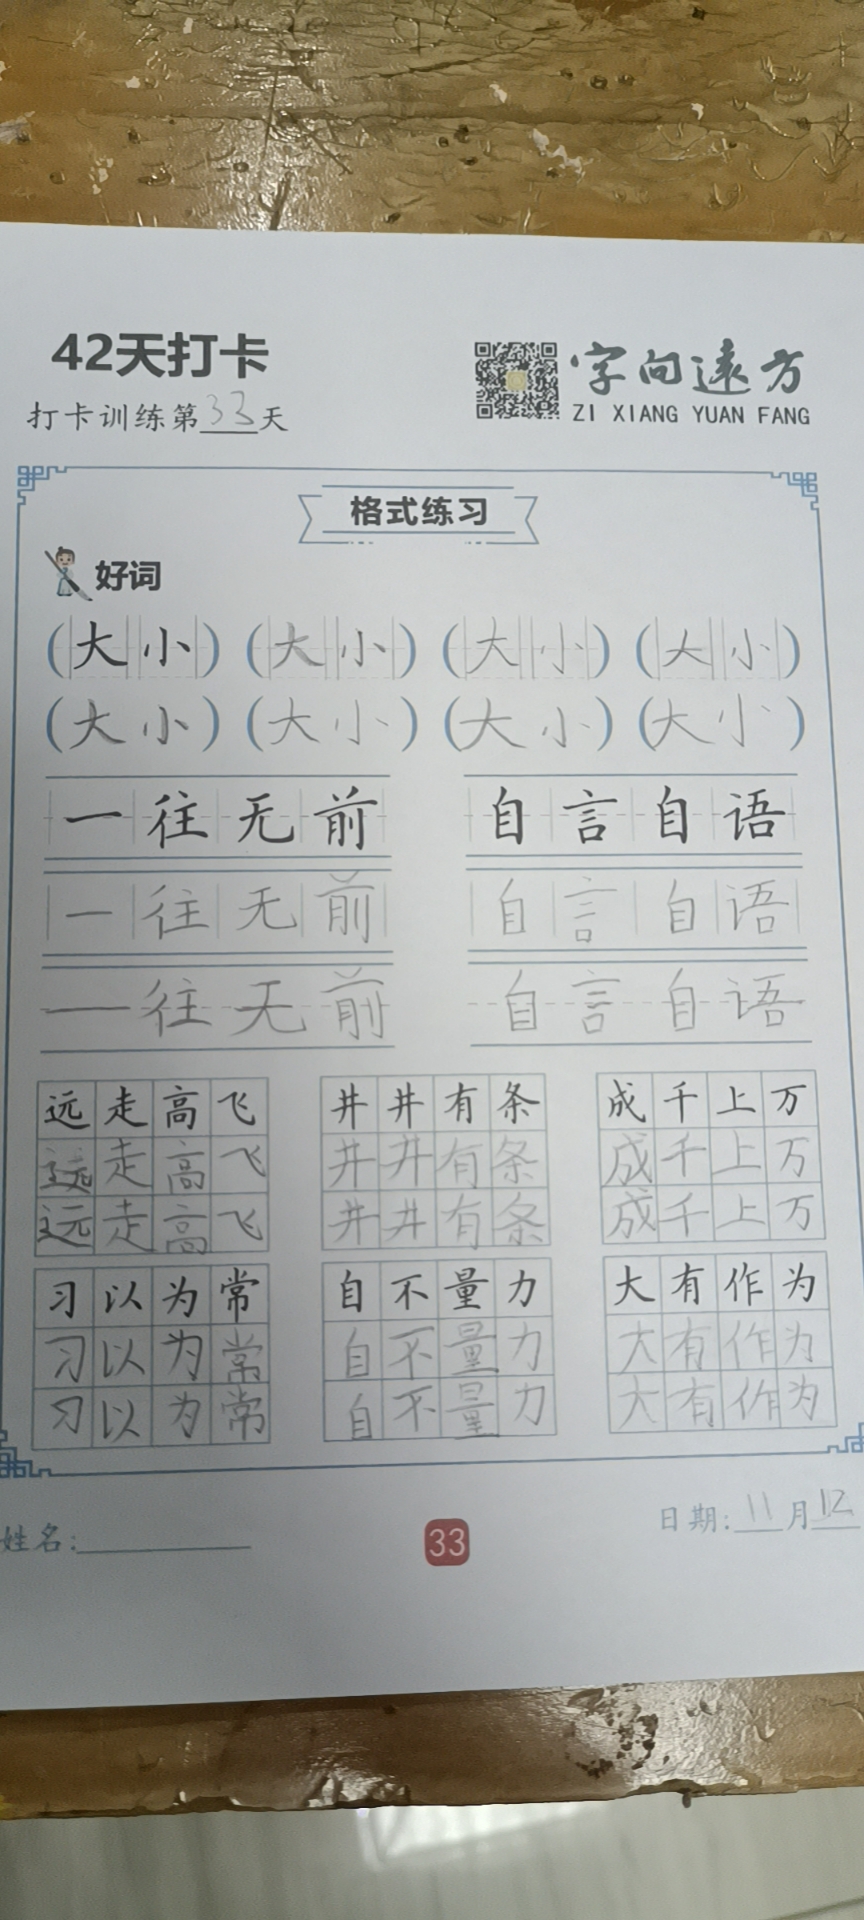 42天打卡
字向远方
打卡训练第33天
ZI XIANG YUAN FANG
格式练习
好词
(大小) (大小) (大小) (大小)
(大小) (大小) (大小) (大小)
一往无前 自言自语
一往无前 自言自语
一往无前 自言自语
远走高飞 井井有条 成千上万
远走高飞 井井有条 成千上万
远走高飞 井井有条 成千上万
习以为常 自不量力 大有作为
习以为常 自不量力 大有作为
习以为常 自不量力 大有作为
姓名:
33
日期:11月12